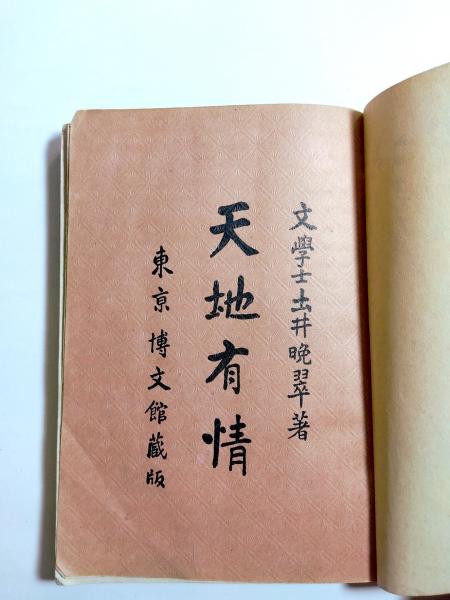 文學士土井晩翠著
天地有情
東京博文館蔵版